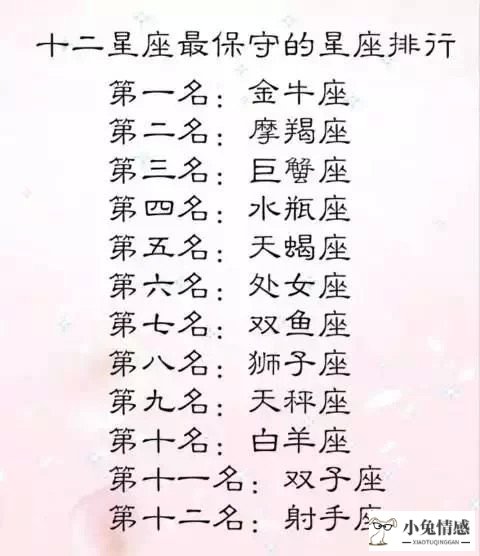 十二星座最保守的星座排行
第一名：金牛座
第二名：摩羯座
第三名：巨蟹座
第四名：水瓶座
第五名：天蝎座
第六名：处女座
第七名：双鱼座
第八名：狮子座
第九名：天秤座
第十名：白羊座
第十一名：双子座
第十二名：射手座
小兔情感
XIAOTUQINGGAN